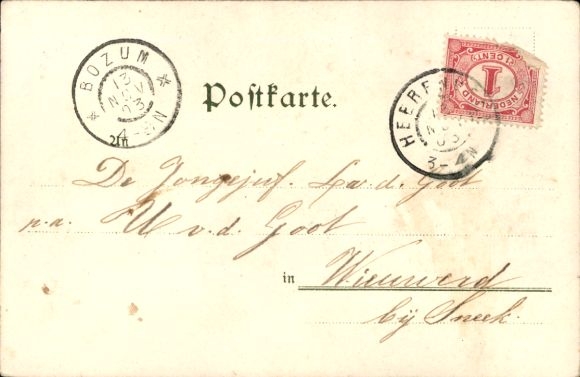 * BOZUM *
13
NOV
03
4-
Postkarte.
HEEREN
NOV
03
3-4N
1 CENT
1
NEDERLAND
De Jongejuf. La. d. Goot
p.a. U v.d. Goot
in Wieuwerd
bij Sneek.